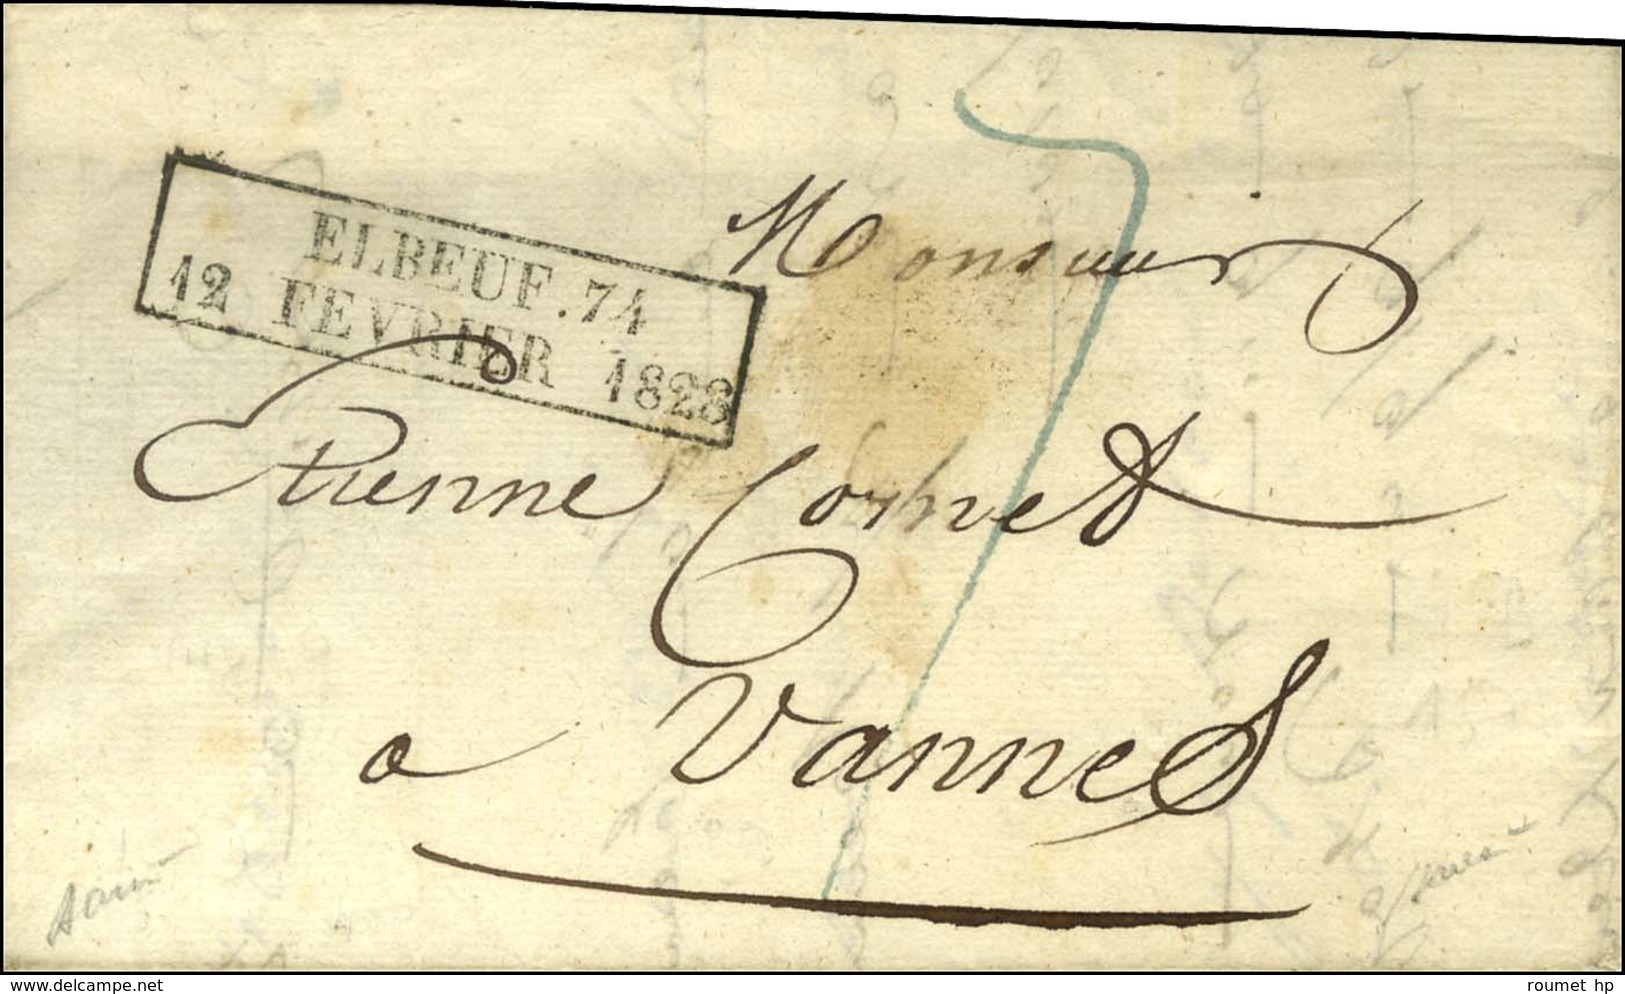 ELBEUF.74
12 FEVRIER 1828
Monsieur
Etienne Cornet
a Vannes
7
delcampe.net
roumet hp